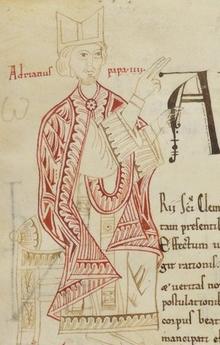 Adrianus papa·iiij·
A
Rij Sci Clem
tam presentib
Effectum u
git rationis.
æ veritas no
postulationib
corpus beat
mancipari ef